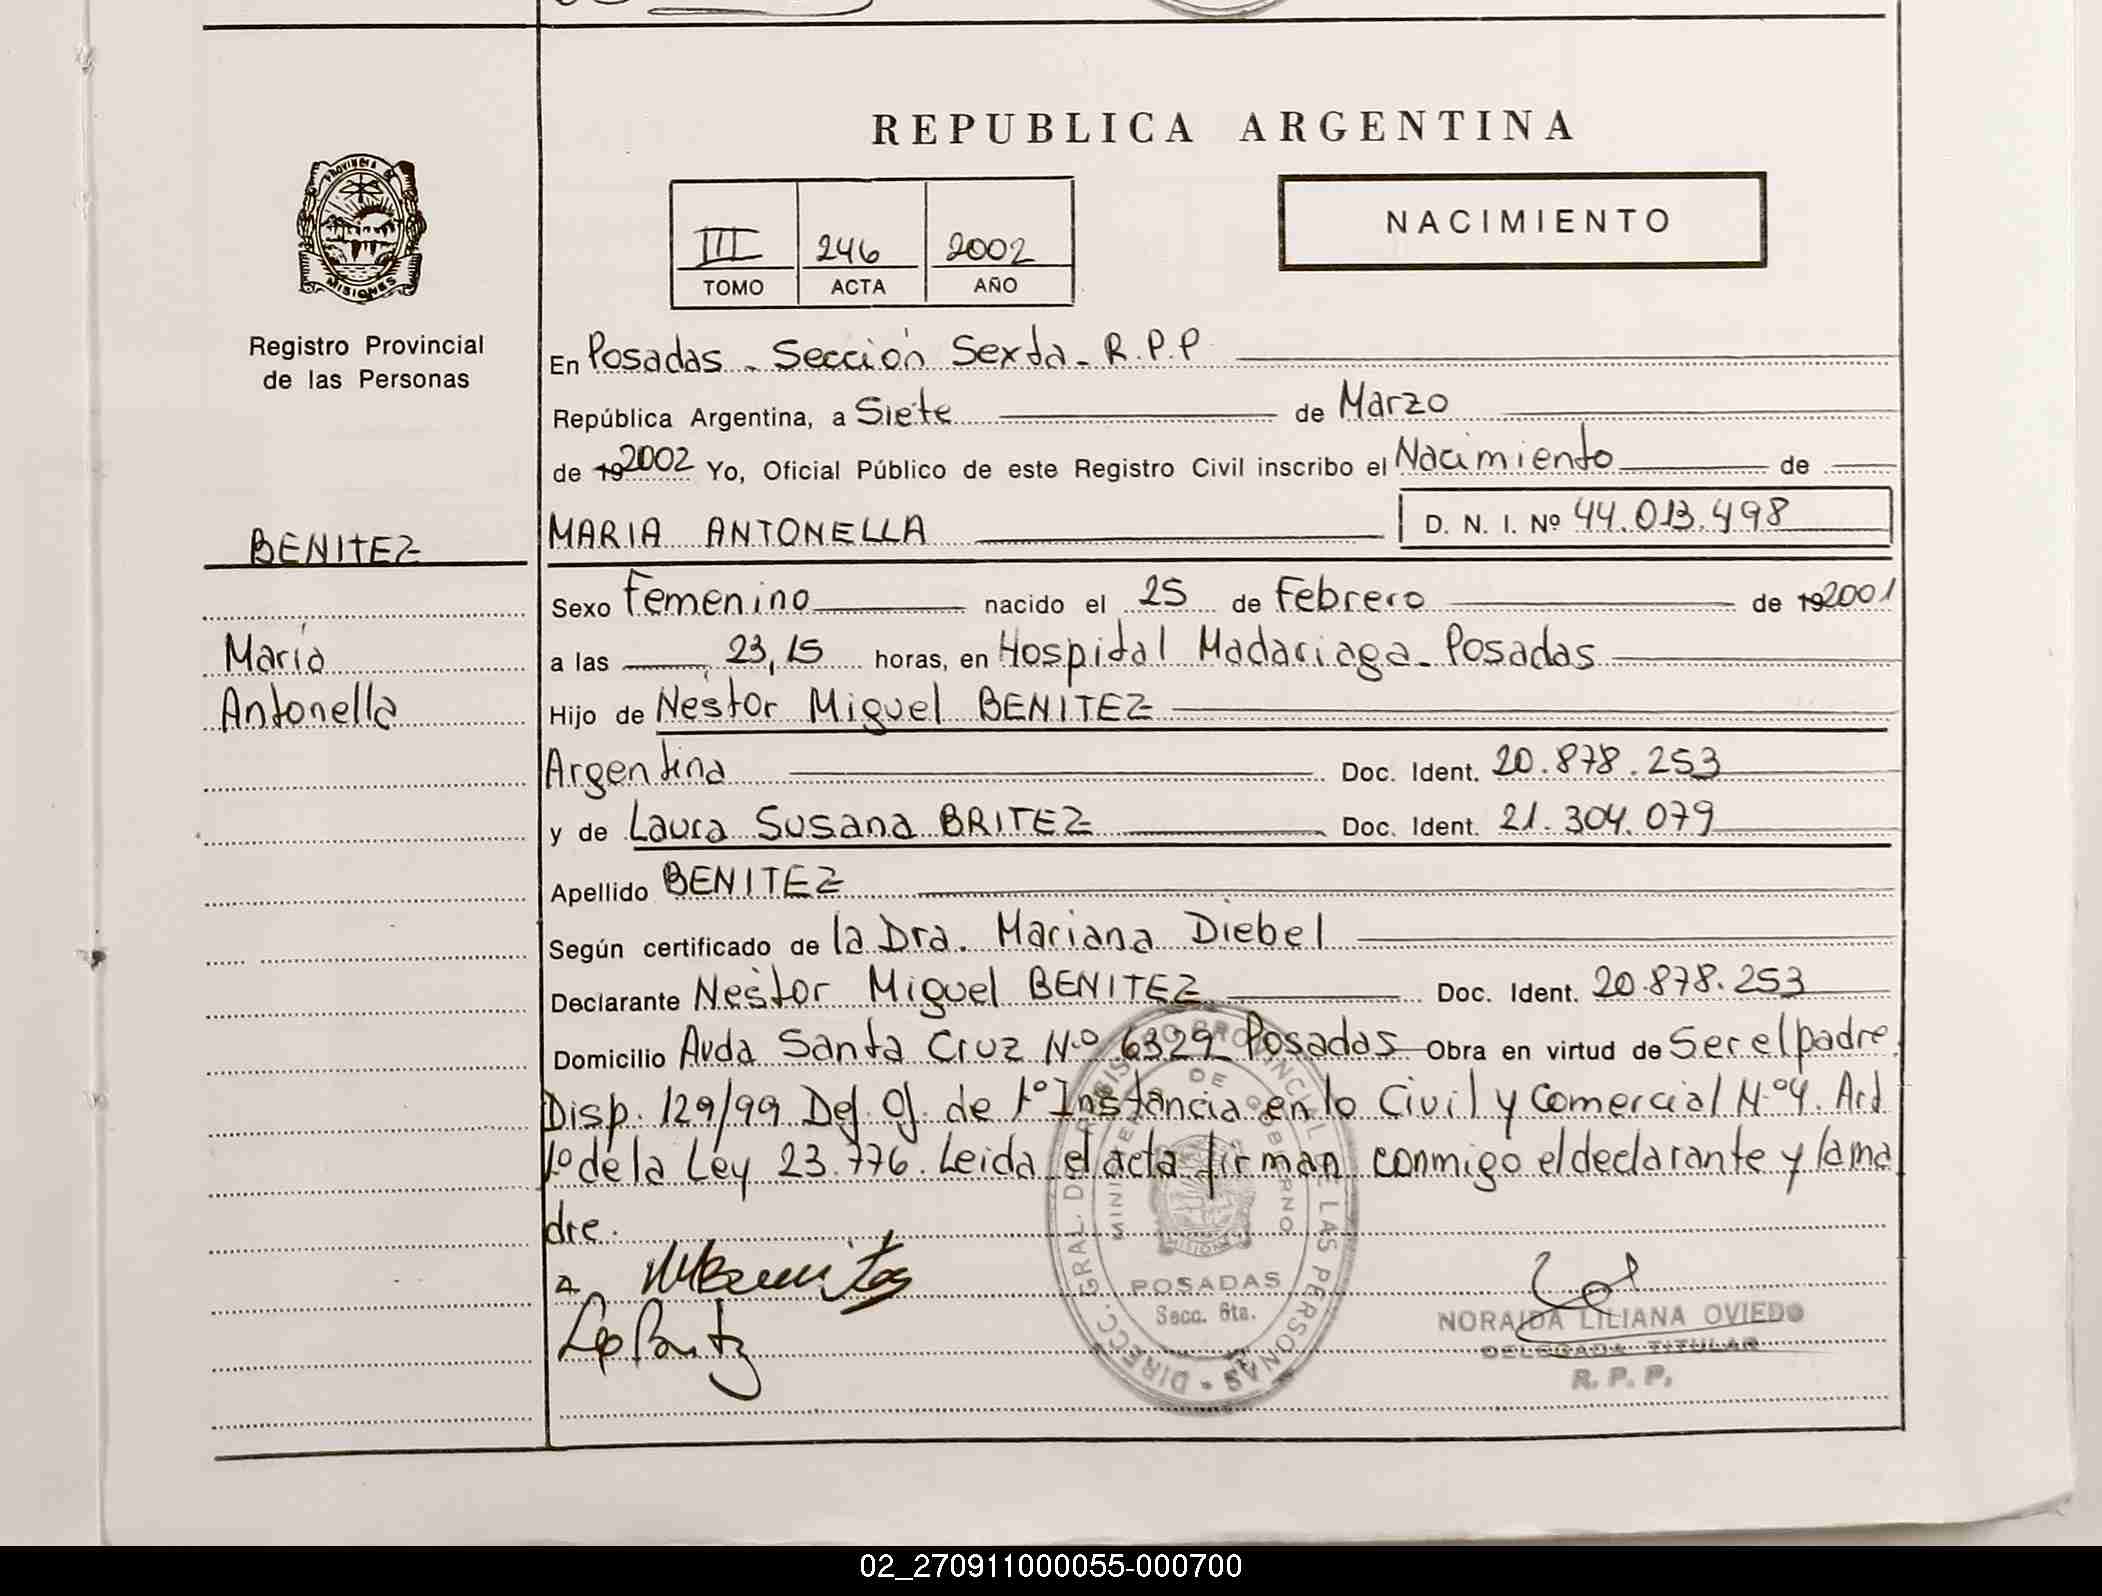 REPUBLICA ARGENTINA
PROVINCIA DE
MISIONES
Registro Provincial
de las Personas
III 246 2002
TOMO ACTA AÑO
NACIMIENTO
En Posadas - Sección Sexta - R.P.P
República Argentina, a Siete de Marzo
de 192002 Yo, Oficial Público de este Registro Civil inscribo el Nacimiento de
BENITEZ
MARIA ANTONELLA D. N. I. Nº 44.013.498
Sexo Femenino nacido el 25 de Febrero de 192001
María
Antonella
a las 23,15 horas, en Hospital Madariaga - Posadas
Hijo de Néstor Miguel BENITEZ
Argentina Doc. Ident. 20.878.253
y de Laura Susana BRITEZ Doc. Ident. 21.304.079
Apellido BENITEZ
Según certificado de la Dra. Mariana Diebel
Declarante Néstor Miguel BENITEZ Doc. Ident. 20.878.253
Domicilio Avda Santa Cruz N.º 6329 Posadas Obra en virtud de Ser el padre.
Disp. 129/99 Def. Of. de 1º Instancia en lo Civil y Comercial N.º 4. Art
1º de la Ley 23.776. Leida el acta firman conmigo el declarante y la ma
dre.
DIRECC. GRAL. DE REGISTRO PROVINCIAL DE LAS PERSONAS
MINISTERIO DE GOBIERNO
MISIONES
POSADAS
Secc. 6ta.
NORAIDA LILIANA OVIEDO
DELEGADA TITULAR
R. P. P.
02_270911000055-000700